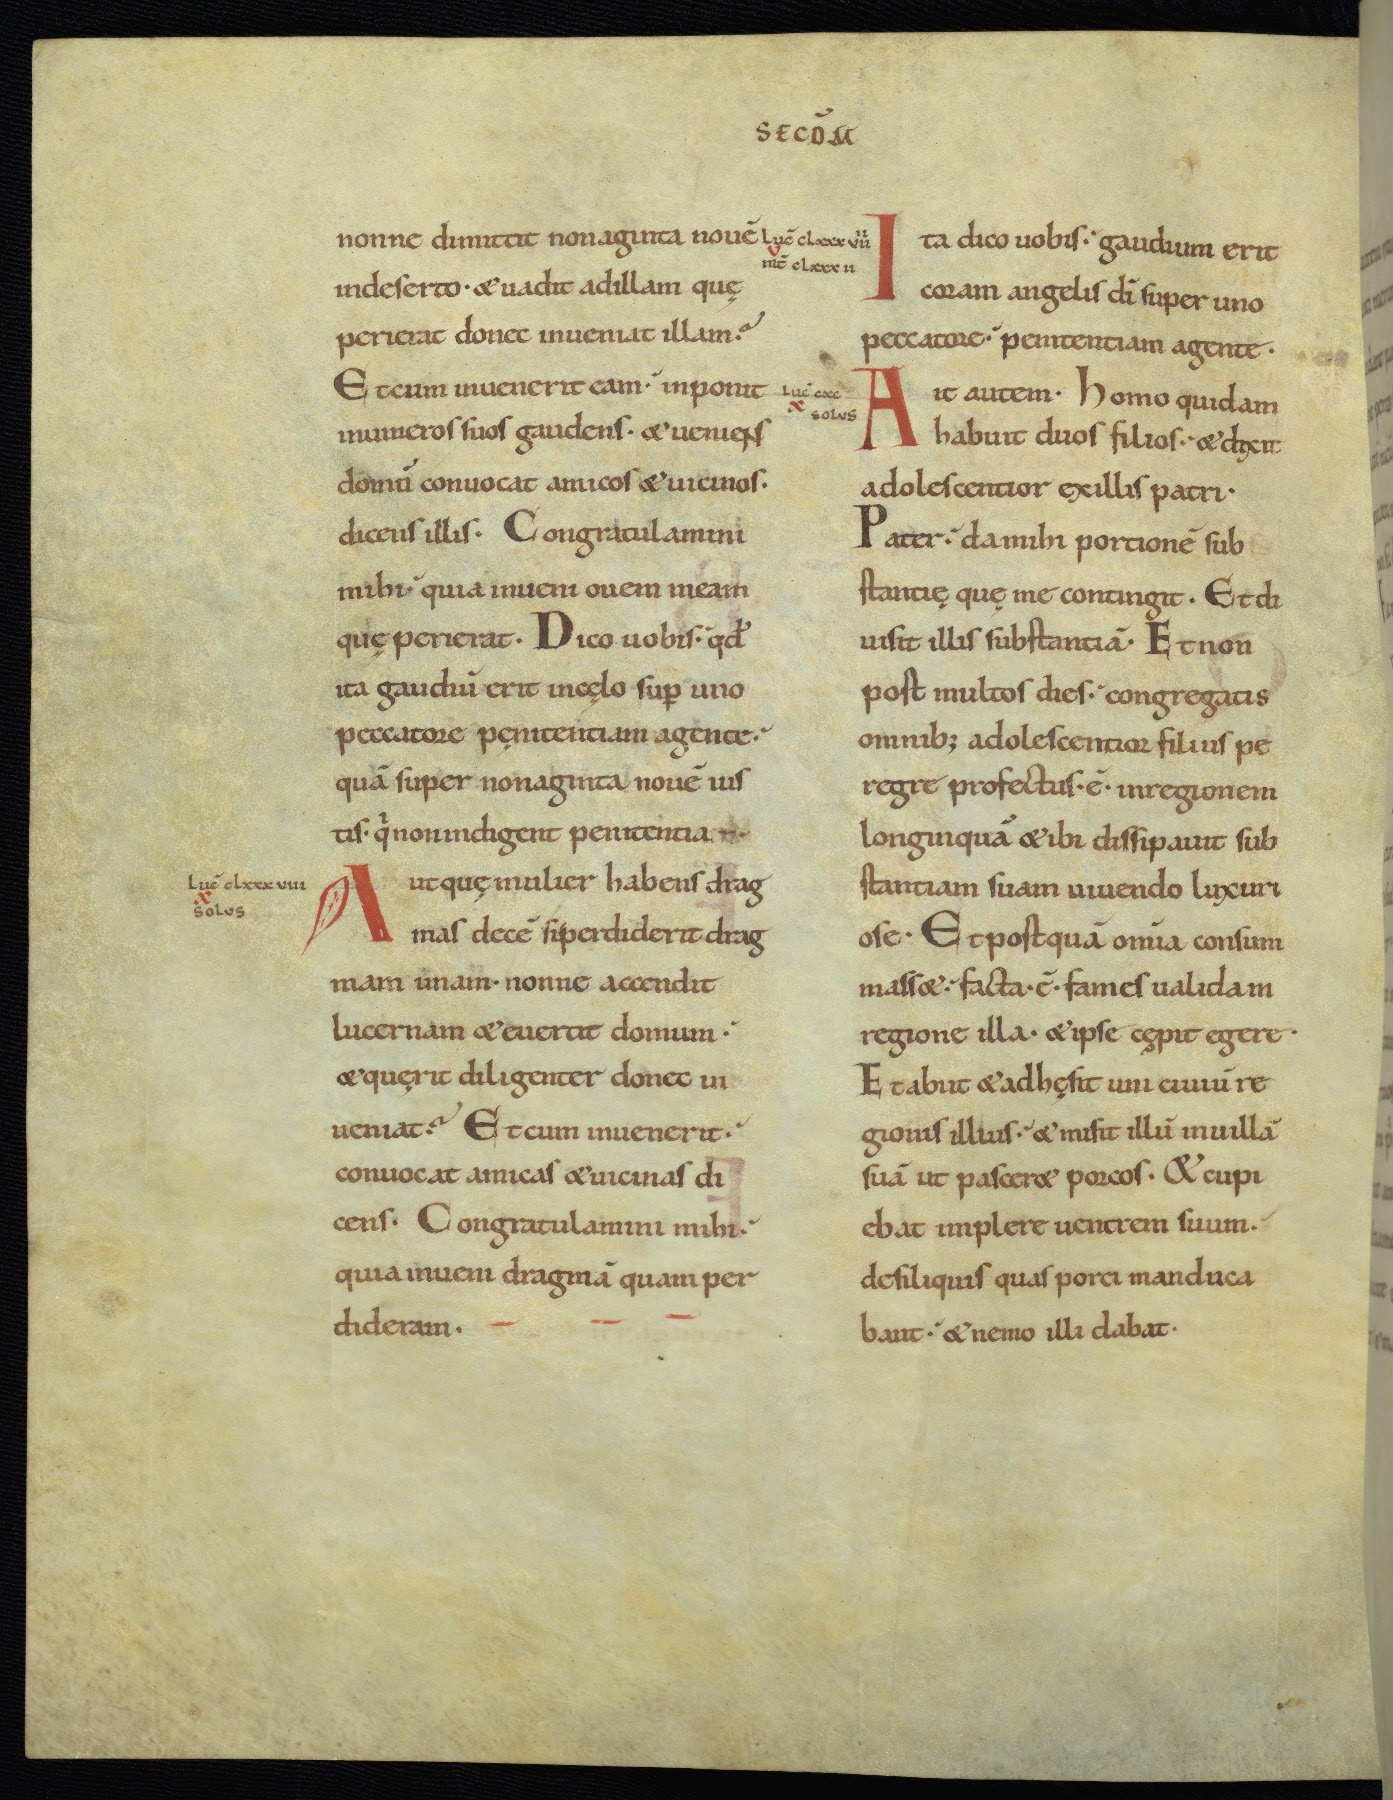 SECŌM
nonne dimittit nonaginta nouē
indeserto· & uadit adillam quę
perierat donec inueniat illam·
Et cum inuenerit eam· inponit
inumeros suos gaudens· & ueniens
domū conuocat amicos & uicinos·
dicens illis· Congratulamini
mihi· quia inueni ouem meam
quę perierat· Dico uobis· qđ
ita gaudiū erit incęlo sup̱ uno
peccatore pęnitentiam agente·
quā super nonaginta nouē ius
tis· q̄ nonindigent penitentia
Lūc clxxxviii
x
solus
Aut quę mulier habens drag
mas decē siperdiderit drag
mam unam· nonne accendit
lucernam & euertit domum·
& quęrit diligenter donec in
ueniat· Et cum inuenerit·
conuocat amicas & uicinas di
cens· Congratulamini mihi·
quia inueni dragmā quam per
dideram·
Lūc clxxxvii
v
mt̄ clxxxii
Ita dico uobis· gaudium erit
coram angelis dī super uno
peccatore· penitentiam agente·
Lūc cxc
x
solus
Ait autem· Homo quidam
habuit duos filios· & dixit
adolescentior exillis patri·
Pater· damihi portionē sub
stantię quę me contingit· Et di
uisit illis substantiā· Et non
post multos dies· congregatis
omnib; adolescentior filius pe
regre profectus·ē· inregionem
longinquā & ibi dissipauit sub
stantiam suam uiuendo luxuri
ose· Et postquā om̄ia consum
mass&· facta·ē· fames ualidam
regione illa· & ipse cępit egere·
Et abiit & adhęsit uni ciuiū re
gionis illius· & misit illū inuillā
suā ut pascer& porcos· & cupi
ebat implere uentrem suum·
desiliquis quas porci manduca
bant· & nemo illi dabat·